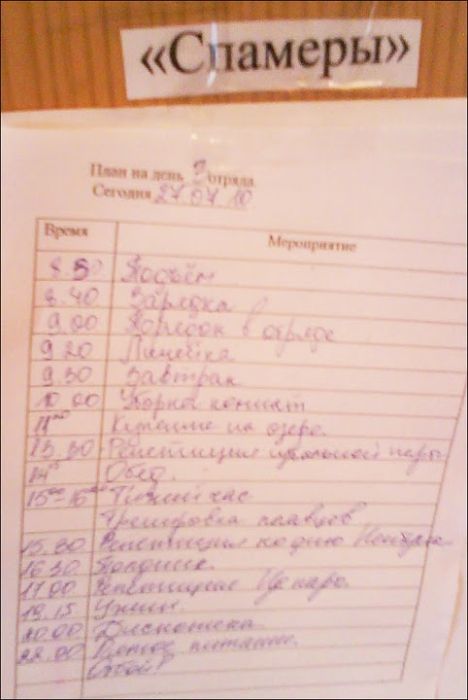 «Спамеры»
План на день 9 отряда
Сегодня 27.07.10
Время Мероприятие
8.30 Подъём
8.40 Зарядка
9.00 Порядок в отряде
9.20 Линейка
9.30 Завтрак
10.00 Уборка комнат
11⁰⁰ Купание на озере.
13.30 Репетиция идеальной пары
14 Обед.
15⁰⁰-16⁰⁰ Тихий час
Тренировка пловцов
15.30 Репетиция ко дню Нептуна
16.30 Полдник.
17.00 Репетиция
19.15 Ужин.
20.00 Дискотека.
22.00 питание.
Отбой!